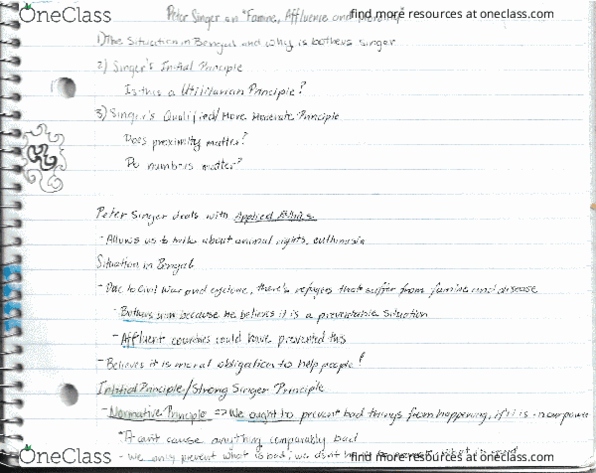 OneClass
find more resources at oneclass.com
Peter Singer on "Famine, Affluence and
1) The Situation in Bengal and why is bothers singer
2) Singer's Initial Principle
Is this a Utilitarian Principle?
3) Singer's Qualified/More Moderate Principle
Does proximity matter?
Do numbers matter?
Peter Singer deals with Applied Ethics
- Allows us to talk about animal rights, euthinasia
Situation in Bengal
- Due to Civil War and cyclone, there's refugees that suffer from famine and disease
- Bothers him because he believes it is a preventable situation
- Affluent countries could have prevented this
- Believes it is moral obligation to help people!
Initial Principle/Strong Singer Principle
- Normative Principle => We ought to prevent bad things from happening, if it is in our power
* It can't cause anything comparably bad
- We only prevent what is bad, we don't
OneClass
find more resources at oneclass.com